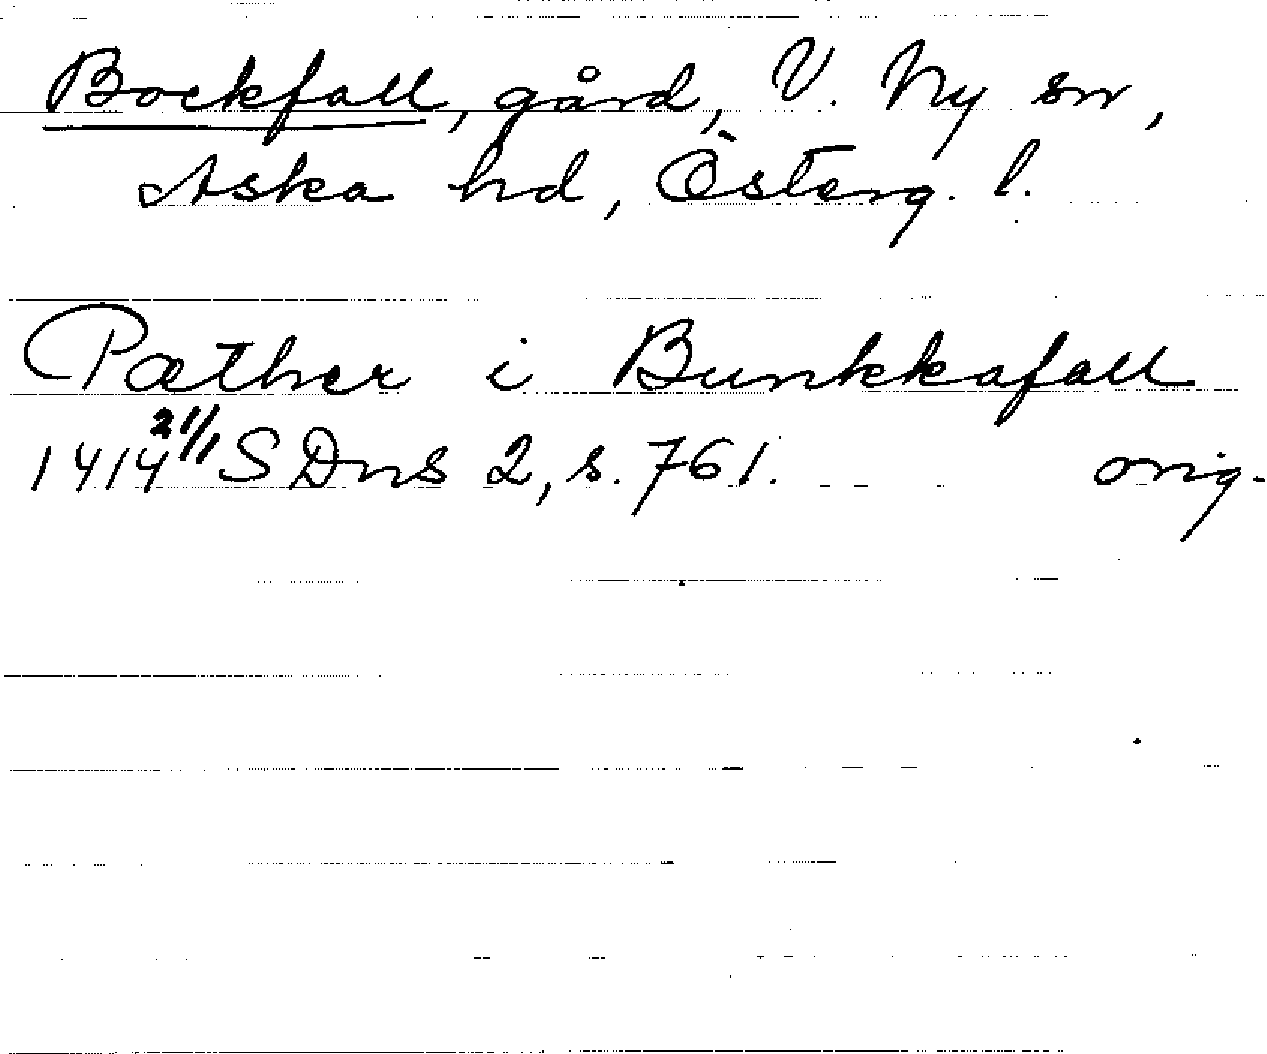 Bockfall, gård, V. Ny sn,
Aska hd, Österg. l.
Pæther i Bunkkafall
1414 21/1 SDns 2, s. 761. orig.